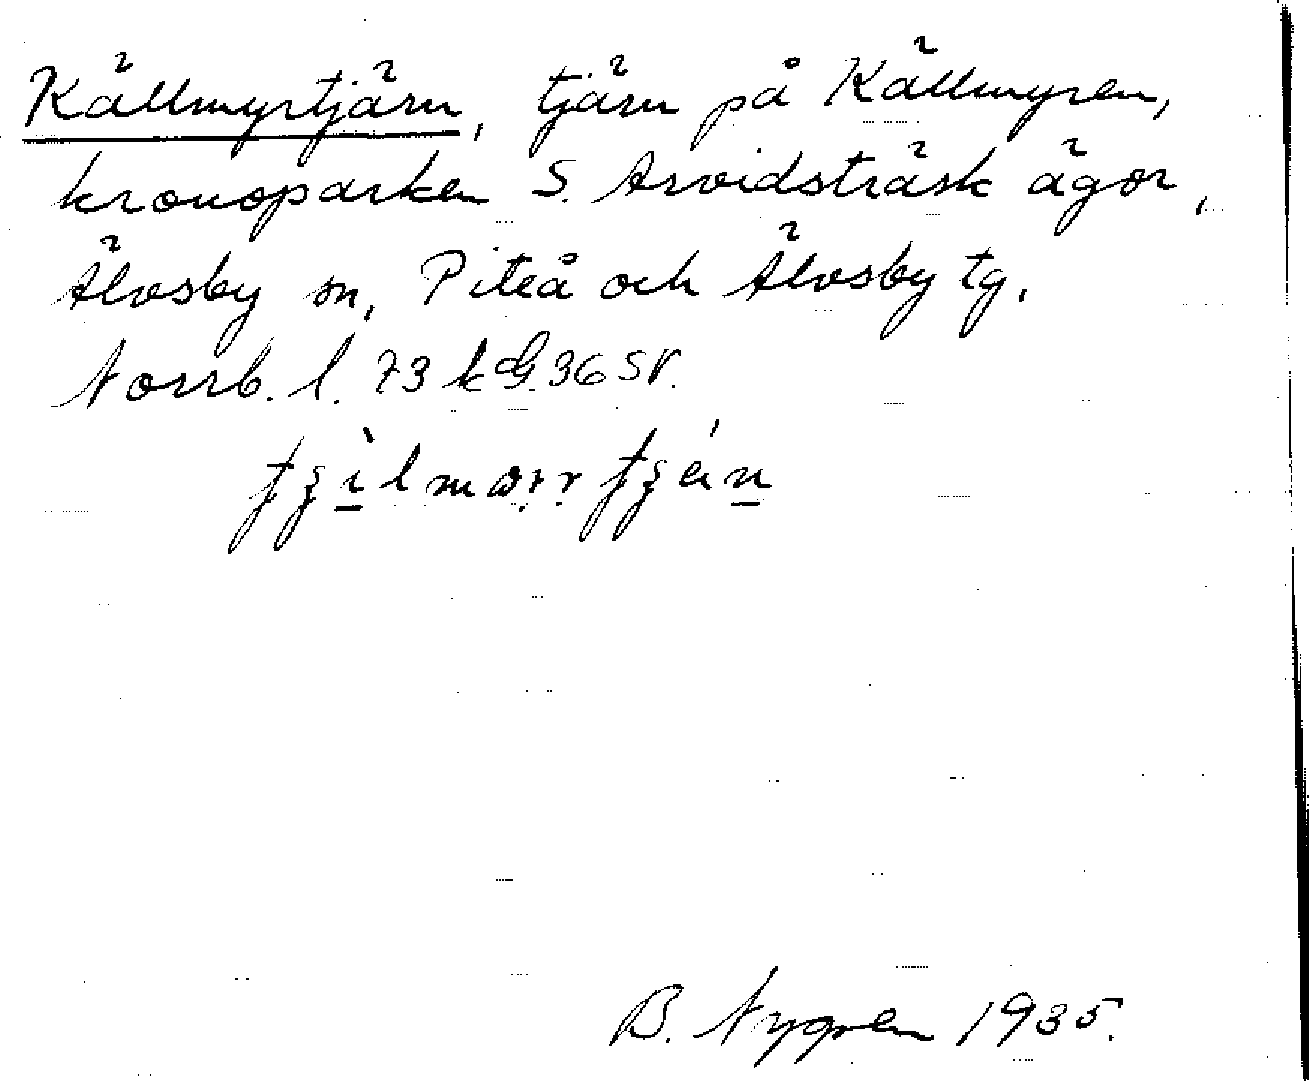 Källmyrtjärn, tjärn på Källmyren,
kronoparken S. Arvidsträsk ägor,
Älvsby sn, Piteå och Älvsby tg,
Norrb. l. 73 k 36 SV.
B. Nygren 1935.